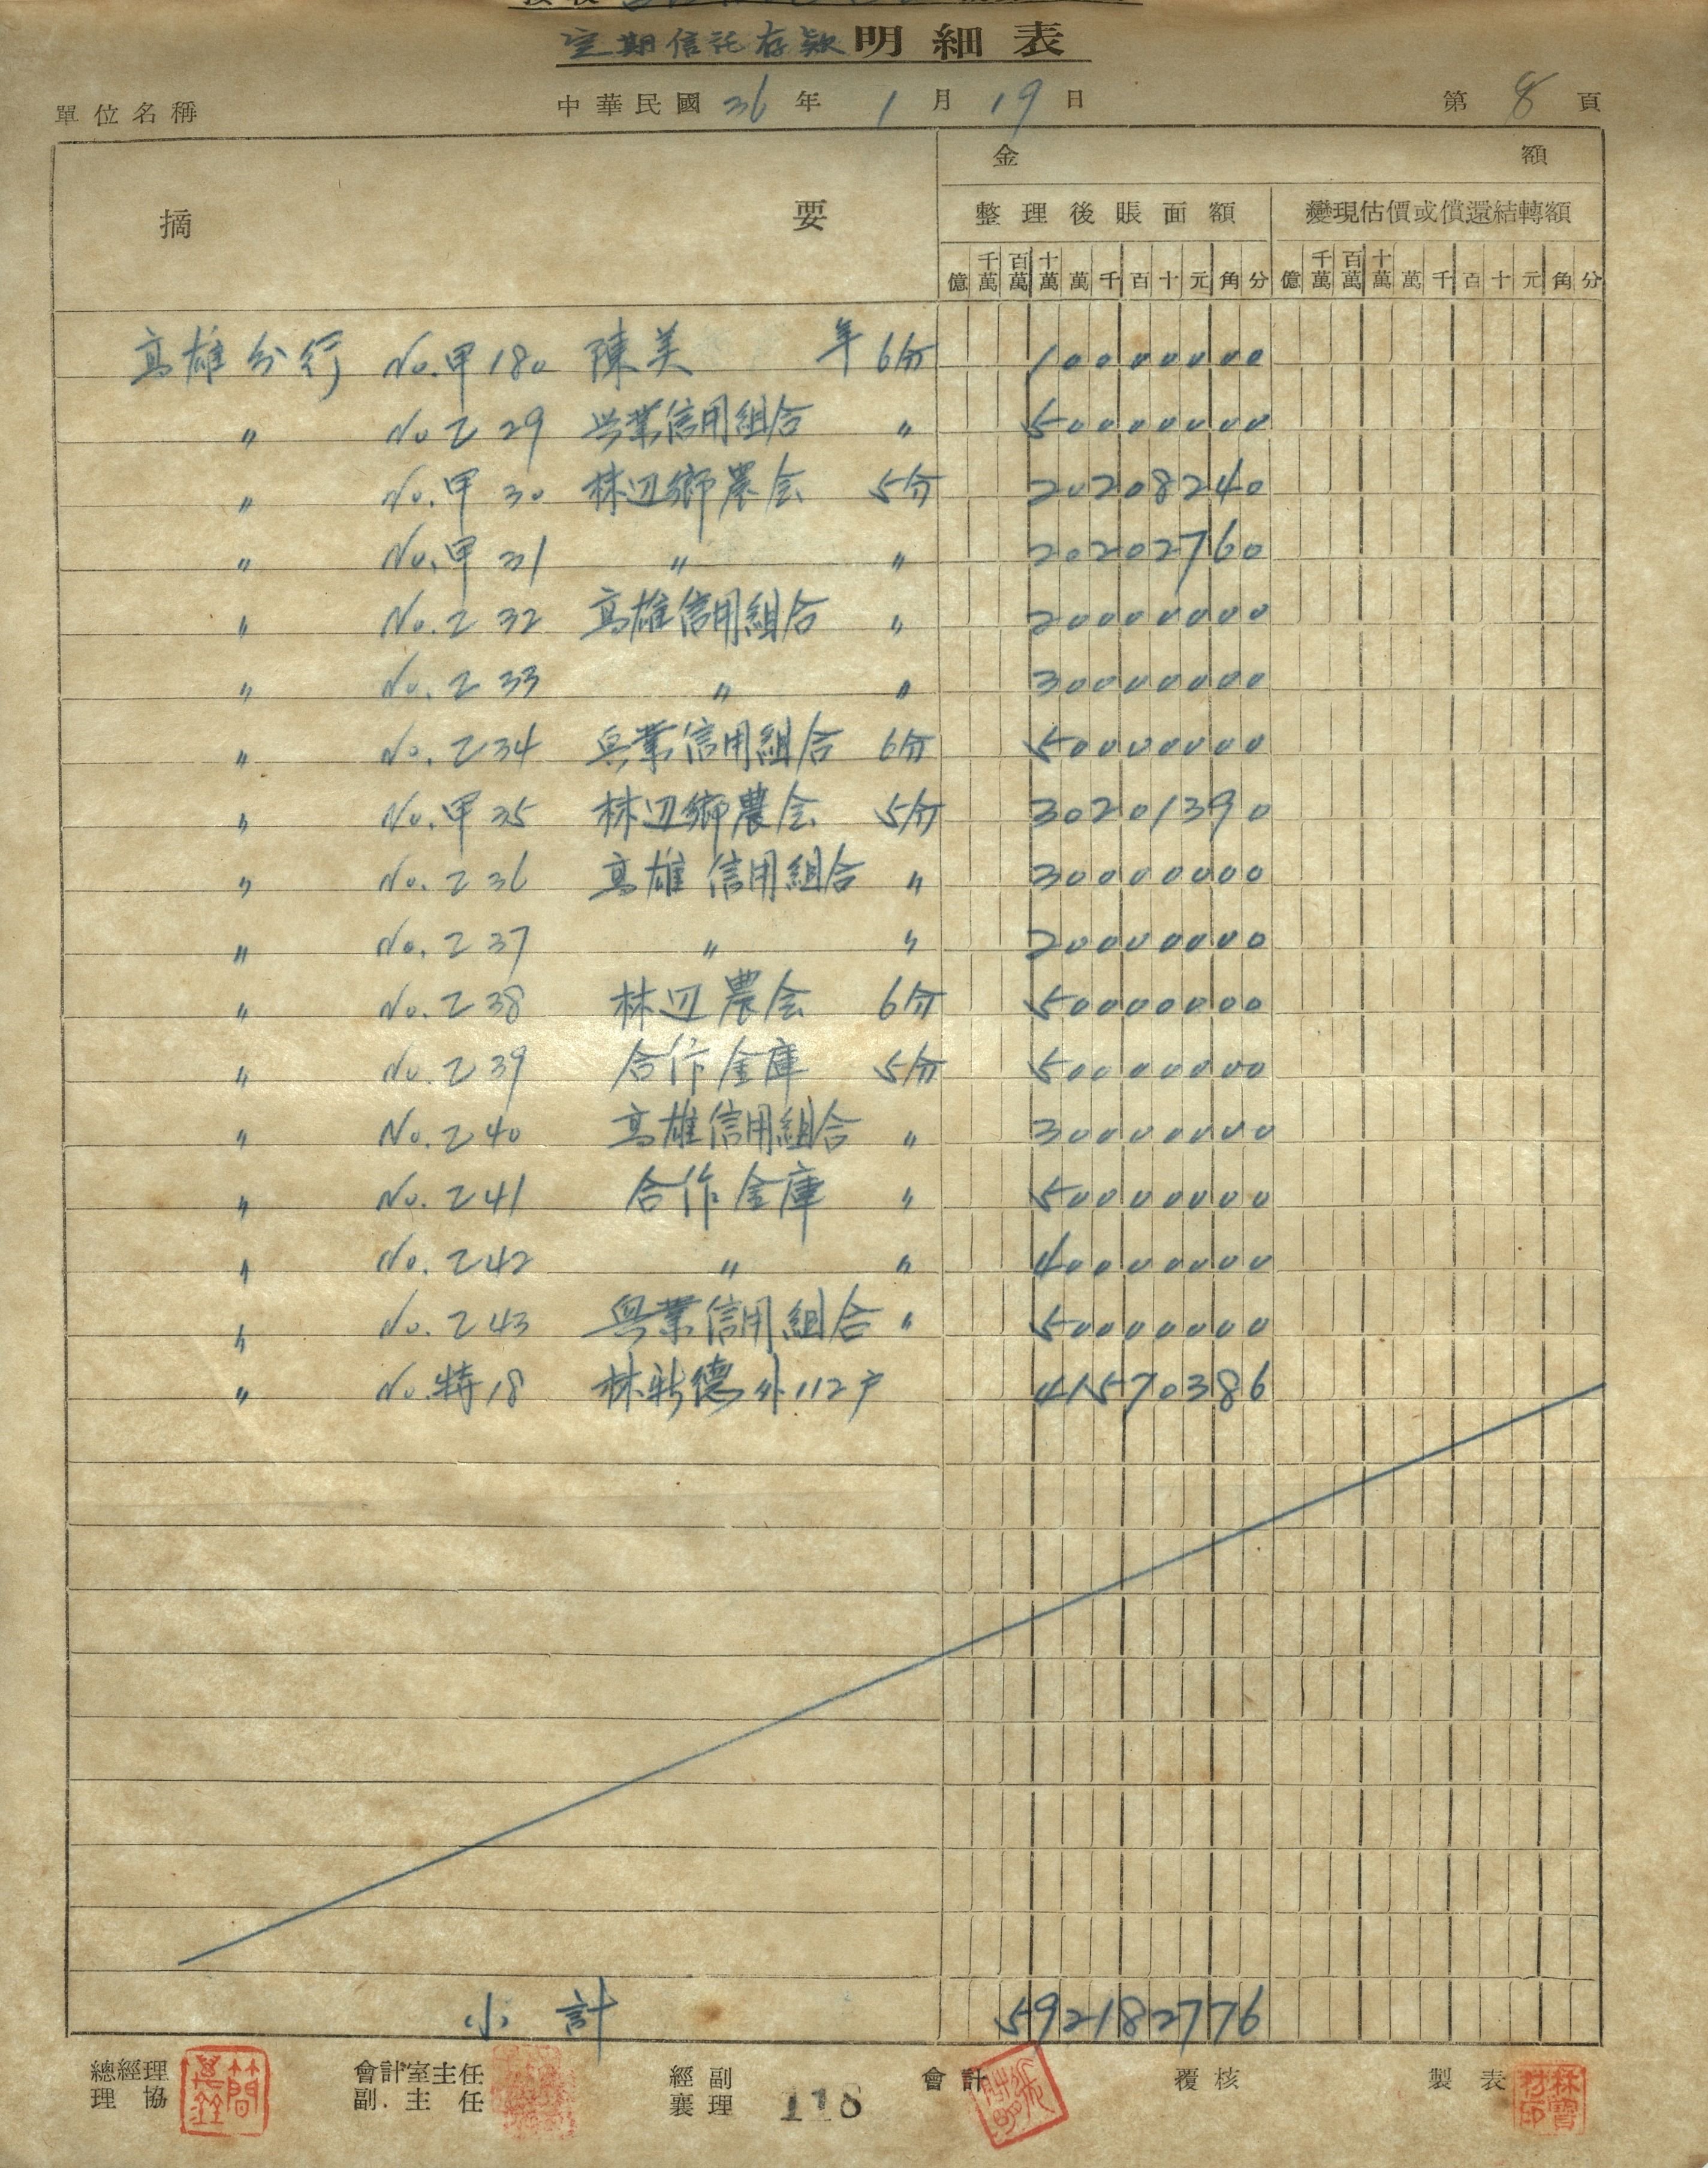 定期信託存款明細表
單位名稱 中華民國36年1月19日 第8頁
摘要 金額
整理後賬面額 變現估價或償還結轉額
億 千萬 百萬 十萬 萬 千 百 十 元 角 分 億 千萬 百萬 十萬 萬 千 百 十 元 角 分
高雄分行 No.甲180 陳美 年6分 10000000
〃 No乙29 興業信用組合 〃 50000000
〃 No.甲30 林辺鄉農会 5分 20208240
〃 No.甲31 〃 〃 20202760
〃 No.乙32 高雄信用組合 〃 20000000
〃 No.乙33 〃 〃 30000000
〃 No.乙34 興業信用組合 6分 50000000
〃 No.甲35 林辺鄉農会 5分 30201390
〃 No.乙36 高雄信用組合 〃 30000000
〃 No.乙37 〃 〃 20000000
〃 No.乙38 林辺農会 6分 50000000
〃 No.乙39 合作金庫 5分 50000000
〃 No.乙40 高雄信用組合 〃 30000000
〃 No.乙41 合作金庫 〃 50000000
〃 No.乙42 〃 〃 40000000
〃 No.乙43 興業信用組合 〃 50000000
〃 No.特18 林新德外112戶 41570386
小計 592182776
總經理 會計室主任 經副 會計 覆核 製表
理協 副主任 襄理 118